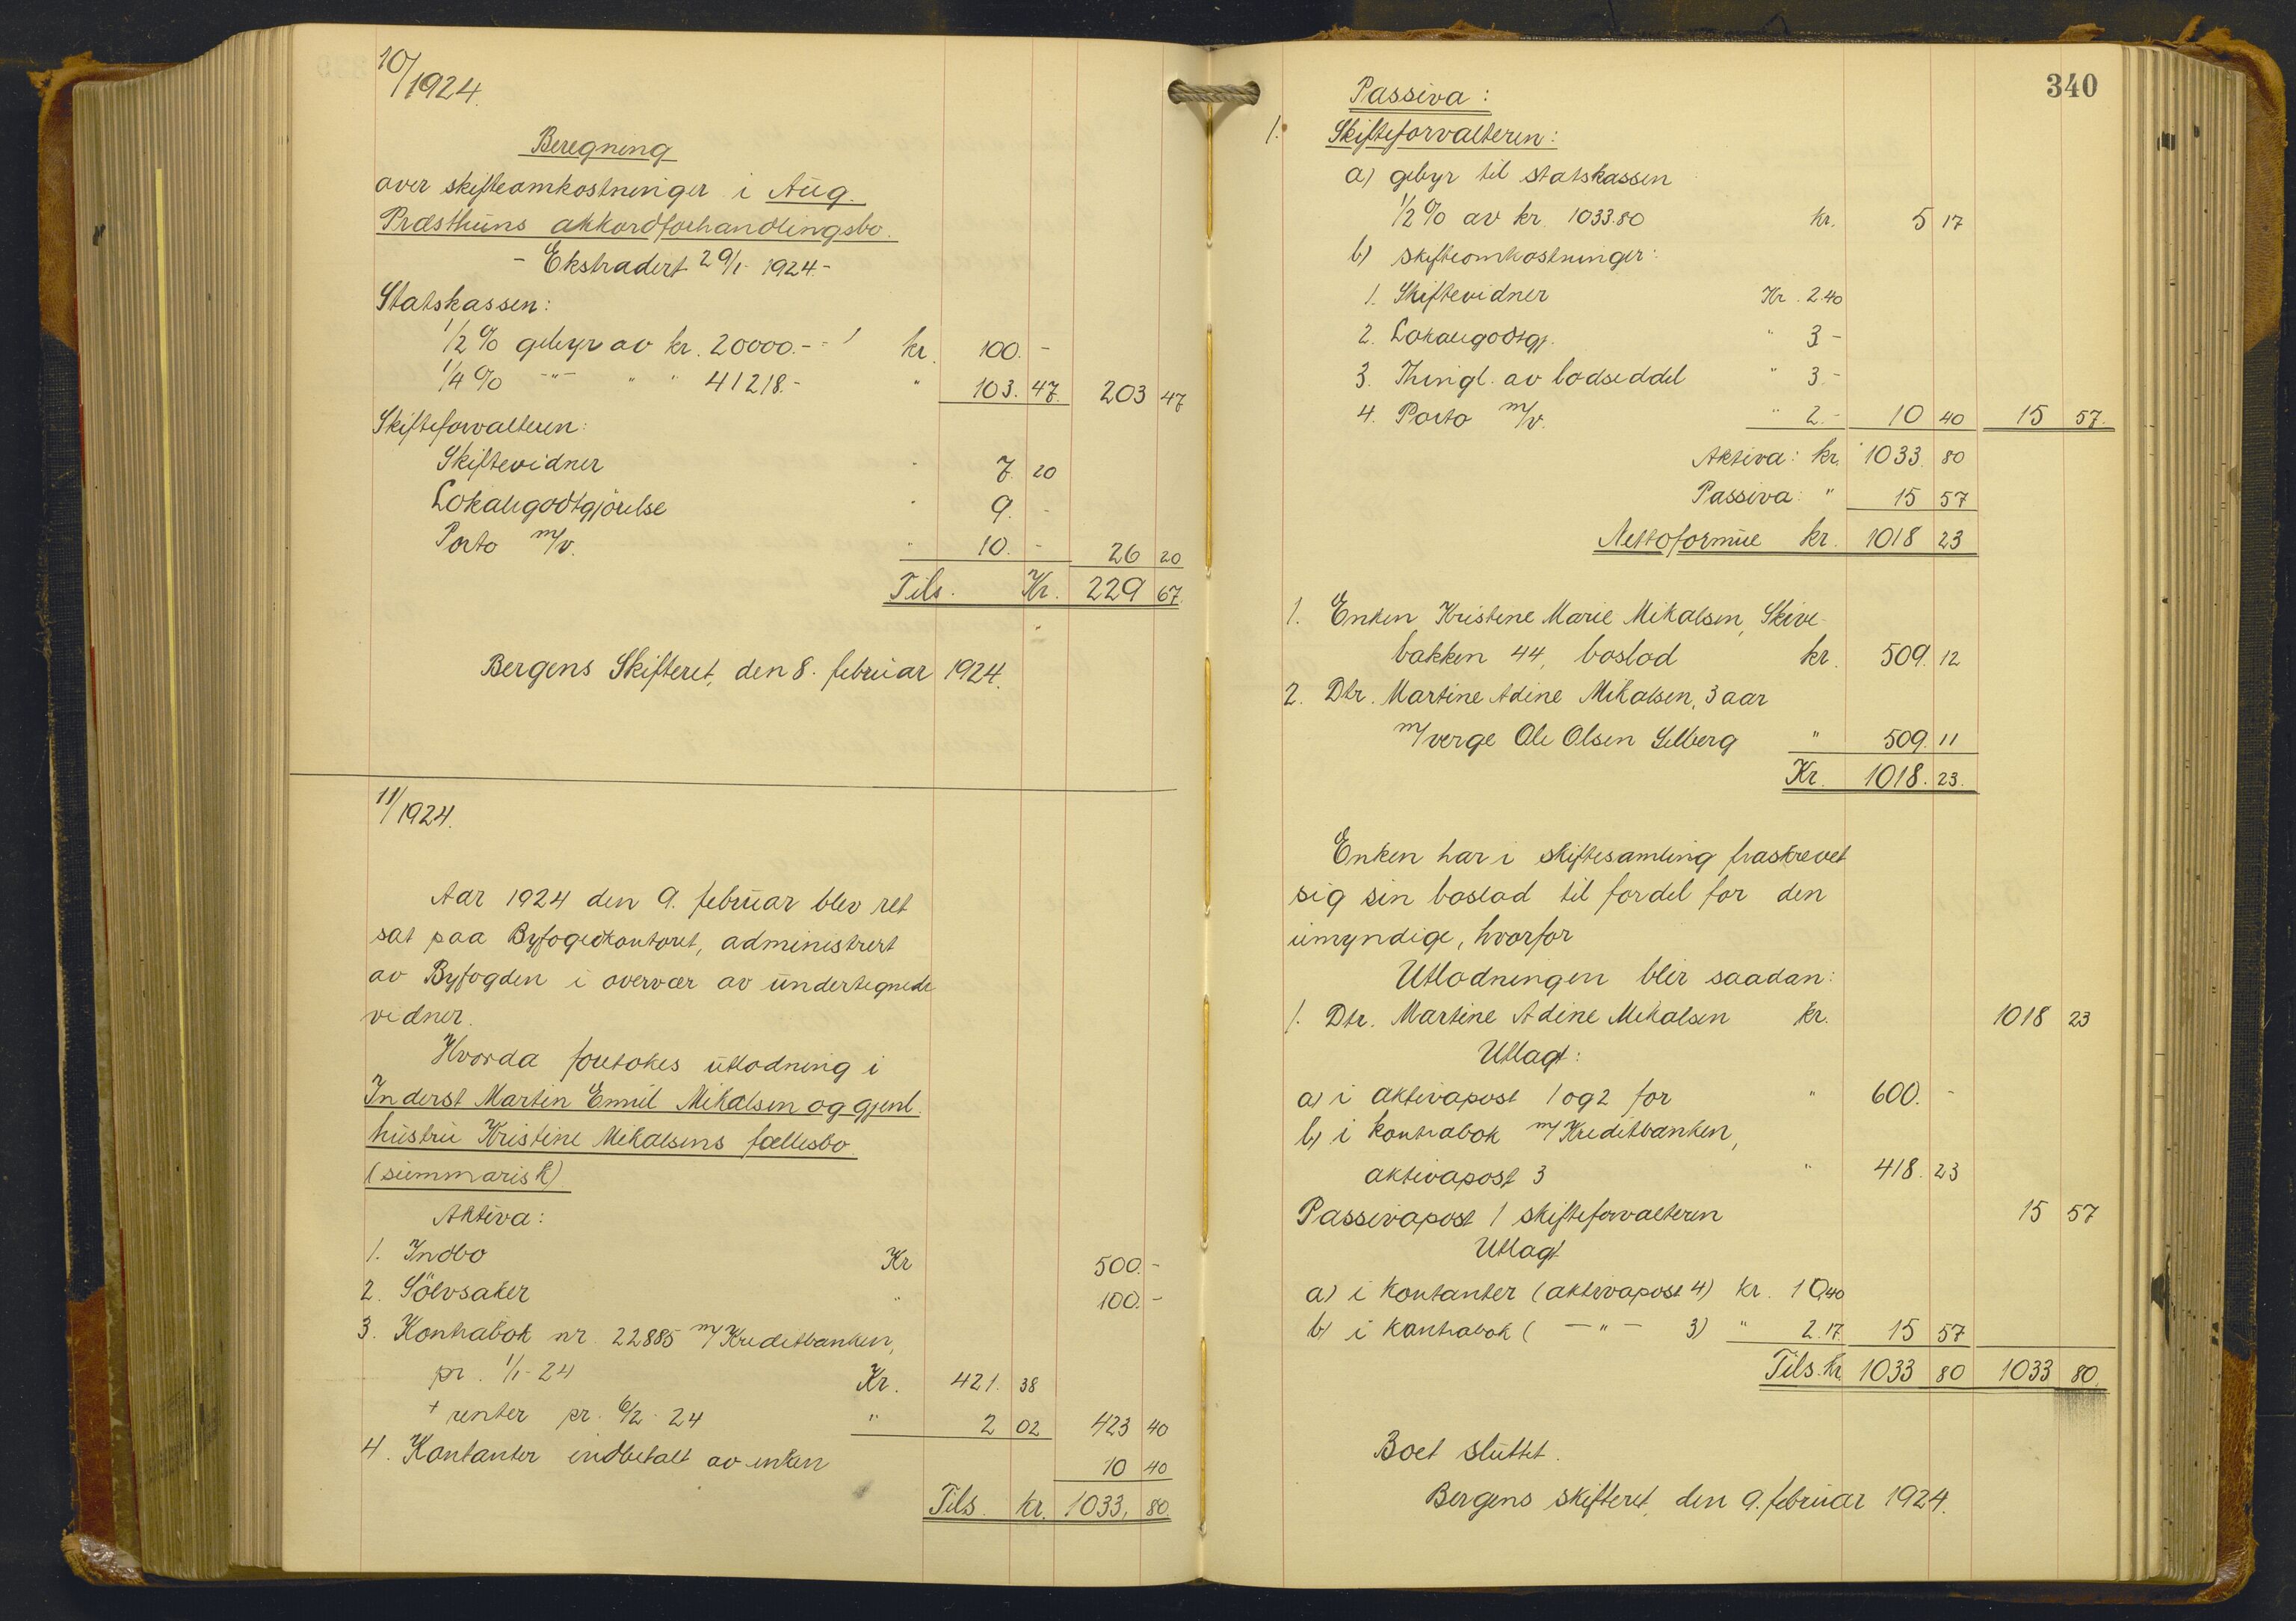 10/1924.
Beregning
over skifteomkostninger i Aug.
Præsthuns akkordforhandlingsbo.
- Ekstradert 29/1- 1924 -
Statskassen:
1/2 % gebyr av kr. 20000.- - kr. 100. -
1/4 % -"- " " 41218.- " 103. 47. 203 47
Skifteforvalteren:
Skiftevidner " 7. 20
Lokalegodtgjörelse " 9. -
Porto m/v. " 10. - 26 20
Tils. Kr. 229 67.
Bergens Skifteret, den 8. februar 1924.
11/1924.
Aar 1924 den 9. februar blev ret
sat paa Byfogedkontoret, administrert
av Byfogden i overvær av undertegnede
vidner.
Hvorda foretokes utlodning i
Inderst Martin Emil Mikalsen og gjenl.
hustru Kristine Mikalsens fællesbo
(summarisk).
Aktiva:
1. Indbo Kr 500.-
2. Sölvsaker " 100.-
3. Kontrabok nr. 22885 m/Kreditbanken,
pr. 1/1-24 Kr. 421. 38
+ renter pr. 6/2-24 " 2 02 423 40
4. Kontanter indbetalt av enken 10 40
Tils. kr. 1033, 80.
340
Passiva:
1. Skifteforvalteren:
a) gebyr til statskassen
1/2 % av kr. 1033.80 kr. 5 17
b) skifteomkostninger:
1. Skiftevidner Kr. 2.40
2. Lokalegodtgj. " 3 -
3. Thingl. av lodseddel " 3.-
4. Porto m/v. " 2.- 10 40 15 57.
Aktiva: kr. 1033. 80
Passiva: " 15 57
Nettoformue kr. 1018 23
1. Enken Kristine Marie Mikalsen, Skive-
bakken 44, boslod kr. 509. 12
2. Dtr. Martine Adine Mikalsen, 3 aar
m/verge Ole Olsen Selberg " 509. 11
Kr. 1018. 23.
Enken har i skiftesamling fraskrevet
sig sin boslod til fordel for den
umyndige, hvorfor
Utlodningen blir saadan:
1. Dtr. Martine Adine Mikalsen kr. 1018 23
Utlagt:
a) i aktivapost 1 og 2 for " 600. -
b) i kontrabok m/Kreditbanken,
aktivapost 3 " 418. 23
Passivapost 1 skifteforvalteren 15 57
Utlagt
a) i kontanter (aktivapost 4) kr. 10,40
b) i kontrabok ( -"- 3) " 2.17. 15 57
Tils. kr. 1033 80 1033 80.
Boet sluttet.
Bergens skifteret, den 9. februar 1924.